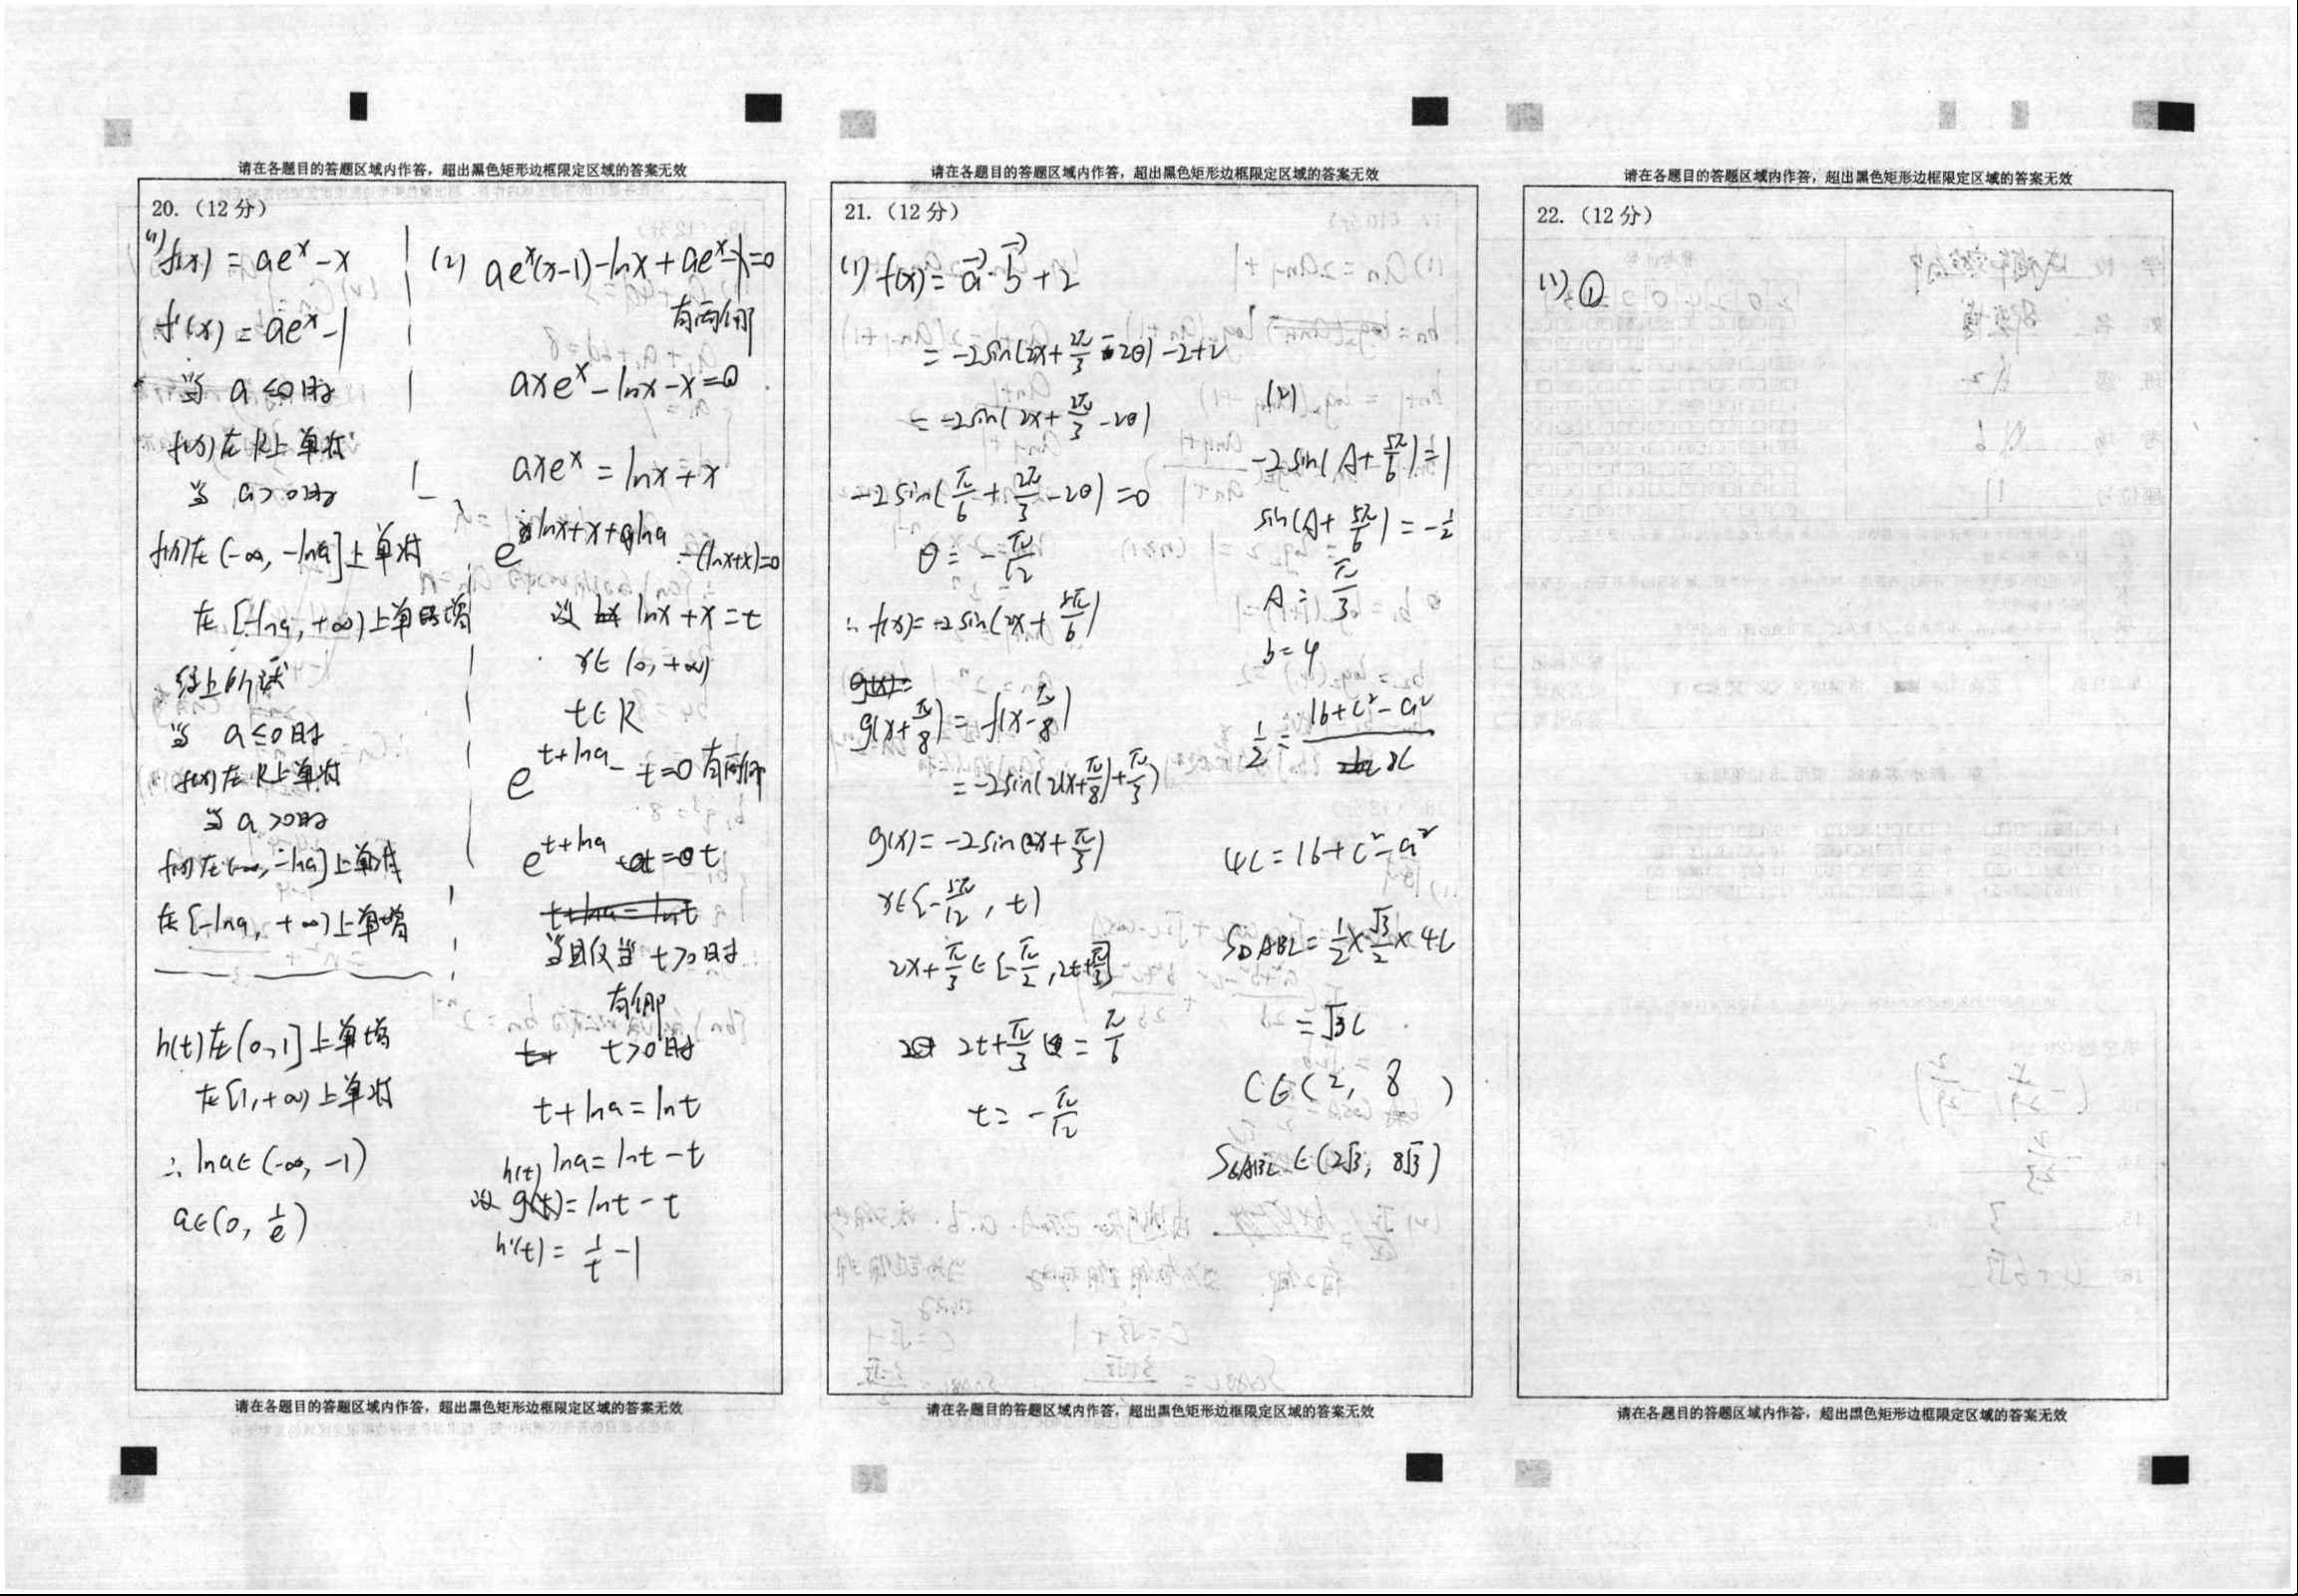 请在各题目的答题区域内作答，超出黑色矩形边框限定区域的答案无效
20.（12 分）
(1) f(x) = ae^x - x
f'(x) = ae^x - 1
当 a ≤ 0 时
f(x) 在 R 上单减
当 a > 0 时
f(x) 在 (-∞, -lna] 上单减
在 [-lna, +∞) 上单增
综上所述
当 a ≤ 0 时
f(x) 在 R 上单减
当 a > 0 时
f(x) 在 (-∞, -lna] 上单减
在 [-lna, +∞) 上单增
h(t) 在 (0, 1] 上单增
在 [1, +∞) 上单减
∴ lna ∈ (-∞, -1)
a ∈ (0, 1/e)
(2) ae^x(x-1) - lnx + ae^x - x = 0
有两个解
axe^x - lnx - x = 0
axe^x = lnx + x
e^{lnx+x+lna} - (lnx+x) = 0
设 lnx + x = t
x ∈ (0, +∞)
t ∈ R
e^{t+lna} - t = 0 有两个解
e^{t+lna} = t
t+lna = lnt
当且仅当 t > 0 时
有解
t > 0 时
t + lna = lnt
lna = lnt - t
设 h(t) = lnt - t
h'(t) = 1/t - 1
请在各题目的答题区域内作答，超出黑色矩形边框限定区域的答案无效
请在各题目的答题区域内作答，超出黑色矩形边框限定区域的答案无效
21.（12 分）
(1) f(x) = a·b + 2
= -2sin(2x + 2π/3 - 2θ) - 2 + 2
= -2sin(2x + 2π/3 - 2θ)
-2sin(π/6 + 2π/3 - 2θ) = 0
θ = -π/12
∴ f(x) = -2sin(2x + 5π/6)
g(x) =
g(x + π/8) = f(x - π/8)
= -2sin(2(x + π/8) + π/3)
g(x) = -2sin(2x + π/3)
x ∈ [-5π/12, t)
2x + π/3 ∈ [-π/2, 2t + π/3]
2t + π/3 = π/6
t = -π/12
(2)
-2sin(A + 5π/6) = 1
sin(A + 5π/6) = -1/2
A = π/3
b = 4
1/2 = (16 + c² - a²)/8c
4c = 16 + c² - a²
S△ABC = 1/2 × √3/2 × 4c
= √3c
C ∈ (2, 8 )
S△ABC ∈ (2√3, 8√3)
请在各题目的答题区域内作答，超出黑色矩形边框限定区域的答案无效
请在各题目的答题区域内作答，超出黑色矩形边框限定区域的答案无效
22.（12 分）
(1) ①
请在各题目的答题区域内作答，超出黑色矩形边框限定区域的答案无效